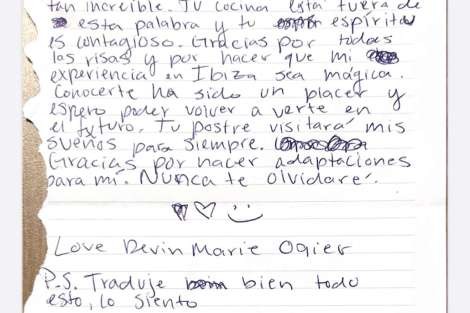 tan increíble. Tu cocina está fuera de
esta palabra y tu espíritu
es contagioso. Gracias por todas
las risas y por hacer que mi
experiencia en Ibiza sea mágica.
Conocerte ha sido un placer y
espero poder volver a verte en
el futuro. Tu postre visitará mis
sueños para siempre.
Gracias por hacer adaptaciones
para mí. Nunca te olvidaré.
Love Devin Marie Ogier
P.S. Traduje bien todo
esto, lo siento